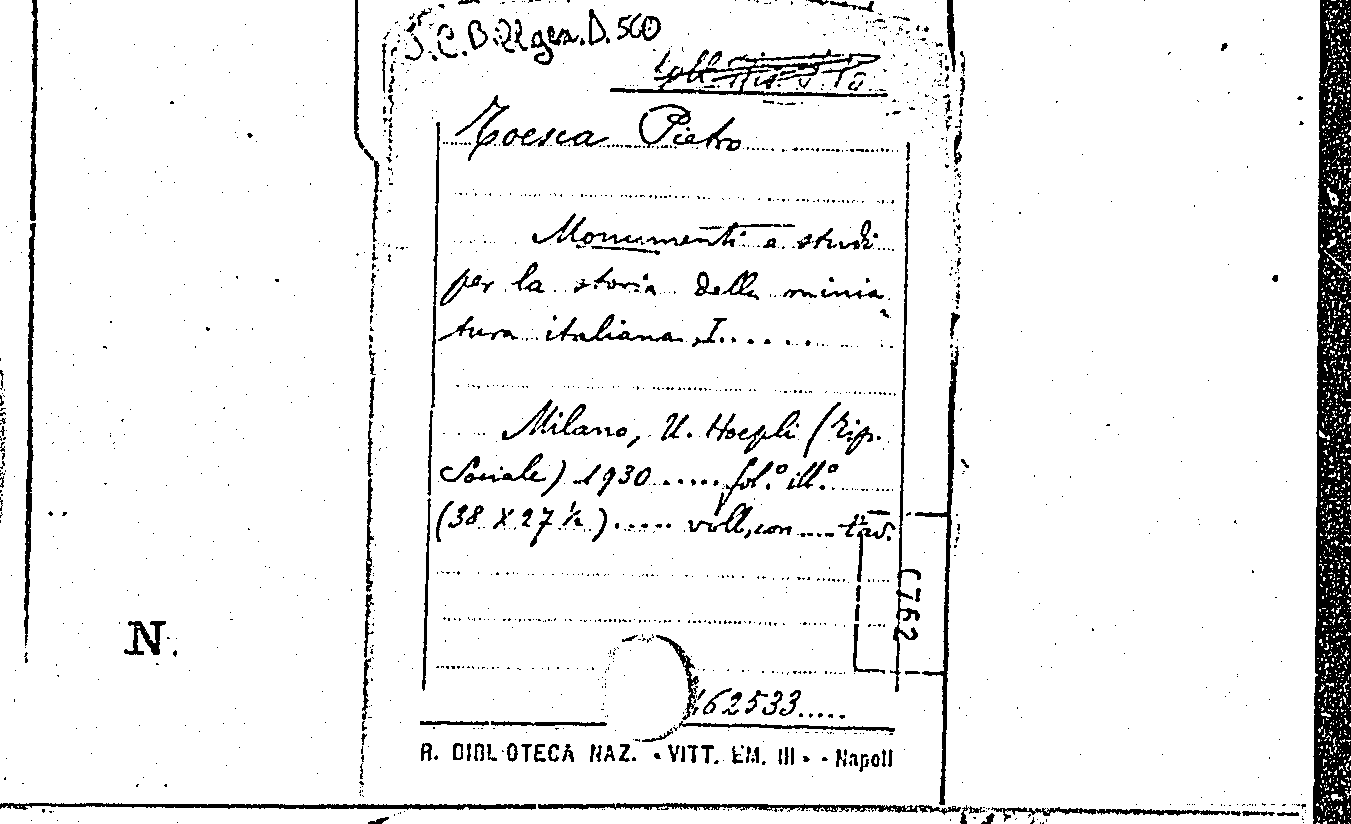 S.C.B. 22 gen. D. 560
Toesca Pietro
Monumenti e studi
per la storia della minia
tura italiana, I......
Milano, U. Hoepli (Tip.
Sociale) 1930 ..... fol.º ill.º
(38 X 27 ½ ) ..... voll, con .... tav.
C762
N.
162533.....
R. BIBLIOTECA NAZ. - VITT. EM. III - - Napoli